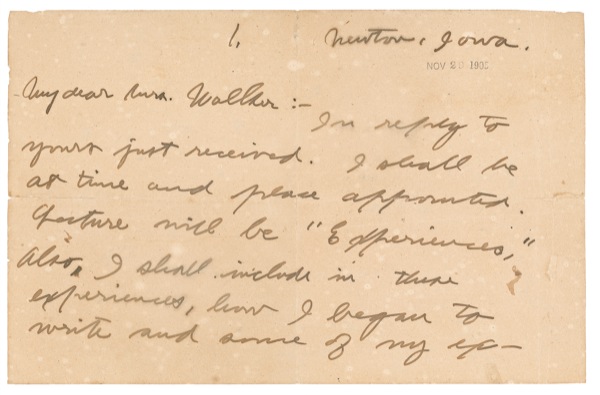 1. Newton, Iowa.
NOV 20 190
My dear Mrs. Walker:-
In reply to
yours just received. I shall be
at time and place appointed.
Lecture will be "Experiences,"
Also, I shall include in these
experiences, how I began to
write and some of my ex-